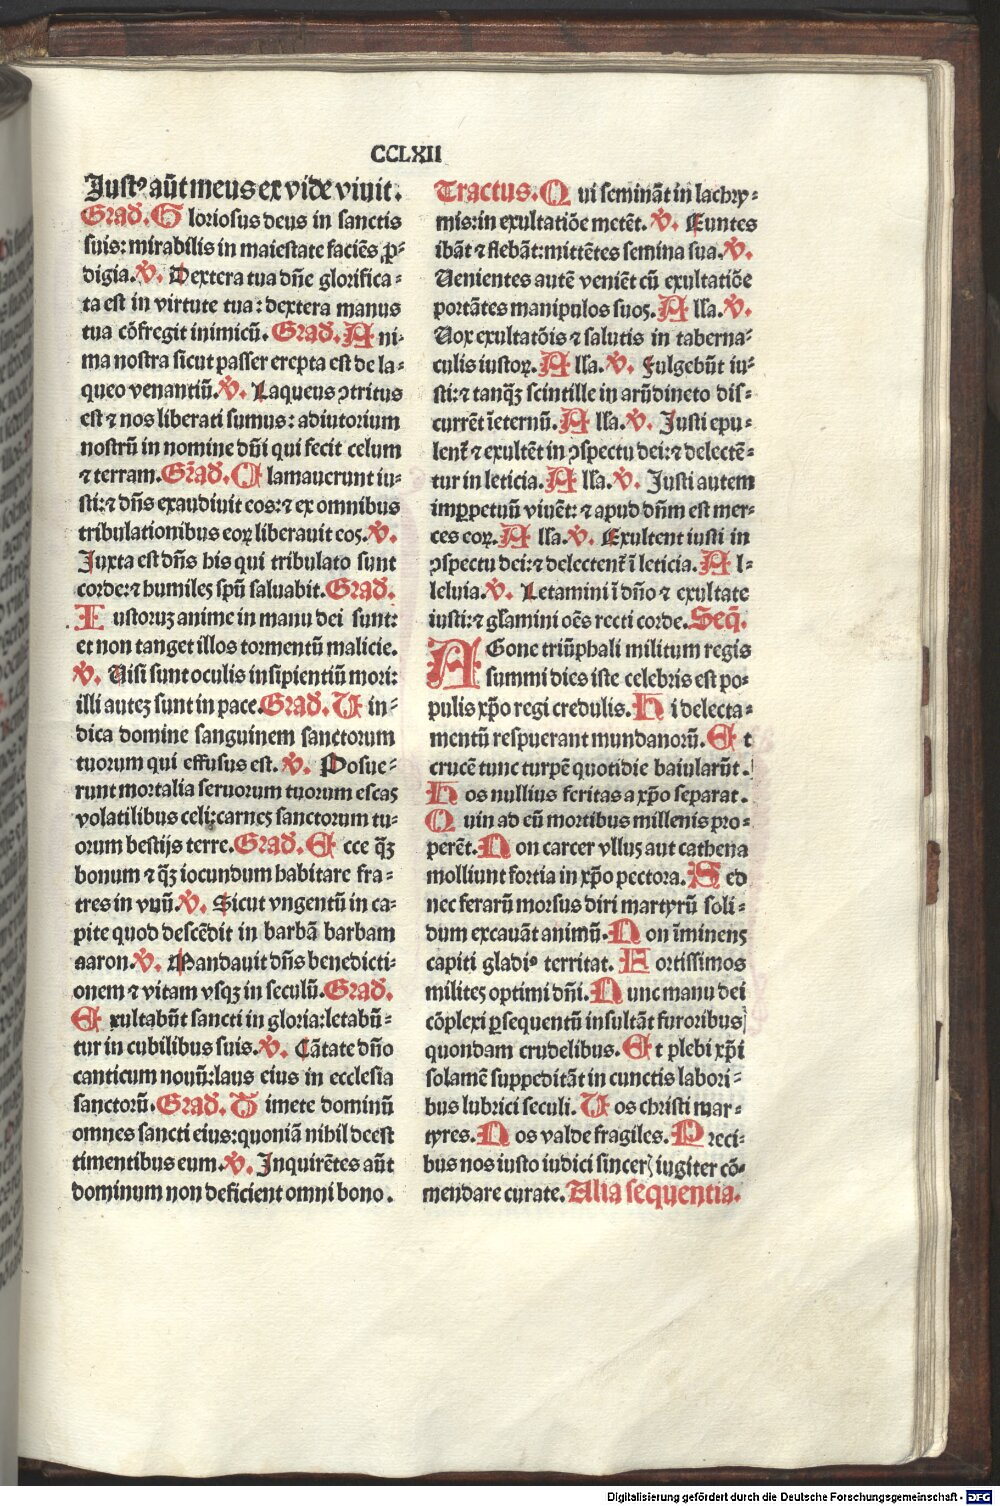 CCLXII
Iustꝰ aūt meus ex vide viuit.
Grad. G loriosus deus in sanctis
suis: mirabilis in maiestate faciēs ꝓ-
digia. V̇. Dextera tua dn̄e glorifica-
ta est in virtute tua: dextera manus
tua cōfregit inimicū. Grad. A ni-
ma nostra sicut passer erepta est de la-
queo venantiū. V̇. Laqueus ꝯtritus
est ⁊ nos liberati sumus: adiutorium
nostrū in nomine dn̄i qui fecit celum
⁊ terram. Grad. C lamauerunt iu-
sti: ⁊ dn̄s exaudiuit eos: ⁊ ex omnibus
tribulationibus eoꝝ liberauit eos. V̇.
Iuxta est dn̄s his qui tribulato sunt
corde: ⁊ humiles spū saluabit. Grad.
I ustoruꝫ anime in manu dei sunt:
et non tanget illos tormentū malicie.
V̇. Uisi sunt oculis insipientiū mori:
illi auteꝫ sunt in pace. Grad. U in-
dica domine sanguinem sanctorum
tuorum qui effusus est. V̇. Posue-
runt mortalia seruorum tuorum escas
volatilibus celi: carnes sanctorum tu-
orum bestijs terre. Grad. E cce qꝫ̄
bonum ⁊ qꝫ̄ iocundum habitare fra-
tres in vnū. V̇. Sicut vngentū in ca-
pite quod descēdit in barbā barbam
aaron. V̇. Mandauit dn̄s benedicti-
onem ⁊ vitam vsqꝫ in seculū. Grad.
E xultabūt sancti in gloria: letabū-
tur in cubilibus suis. V̇. Cātate dn̄o
canticum nouū: laus eius in ecclesia
sanctorū. Grad. T imete dominū
omnes sancti eius: quoniā nihil deest
timentibus eum. V̇. Inquirētes aūt
dominum non deficient omni bono.
Tractus. Q ui semināt in lachry-
mis: in exultatiōe metēt. V̇. Euntes
ibāt ⁊ flebāt: mittētes semina sua. V̇.
Uenientes autē veniēt cū exultatiōe
portātes manipulos suos. A lľa. V̇.
Uox exultatōis ⁊ salutis in taberna-
culis iustoꝝ. A lľa. V̇. Fulgebūt iu-
sti: ⁊ tanqꝫ̄ scintille in arūdineto dis-
currēt ieternū. A lľa. V̇. Justi epu-
lent̄ ⁊ exultēt in ꝯspectu dei: ⁊ delectē-
tur in leticia. A lľa. V̇. Justi autem
imꝑpetuū viuēt: ⁊ apud dn̄m est mer-
ces eoꝝ. A lľa. V̇. Exultent iusti in
ꝯspectu dei: ⁊ delectent̄ ī leticia. A l-
leluia. V̇. Letamini ī dn̄o ⁊ exultate
iusti: ⁊ gľamini oēs recti corde. Seq̄.
A Gone triūphali militum regis
summi dies iste celebris est po-
pulis xp̄o regi credulis. H i delecta-
mentū respuerant mundanorū. E t
crucē tunc turpē quotidie baiularūt.
H os nullius feritas a xp̄o separat.
Q uin ad eū mortibus millenis pro-
perēt. N on carcer vllus aut cathena
molliunt fortia in xp̄o pectora. S ed
nec ferarū morsus diri martyrū soli-
dum excauāt animū. N on īminens
capiti gladiꝰ territat. F ortissimos
milites optimi dn̄i. N unc manu dei
cōplexi ꝑsequentū insultāt furoribus
quondam crudelibus. E t plebi xp̄i
solamē suppeditāt in cunctis labori-
bus lubrici seculi. U os christi mar-
tyres. N os valde fragiles. P reci-
bus nos iusto iudici sincerꝭ iugiter cō-
mendare curate. Alia sequentia.
Digitalisierung gefördert durch die Deutsche Forschungsgemeinschaft - DFG